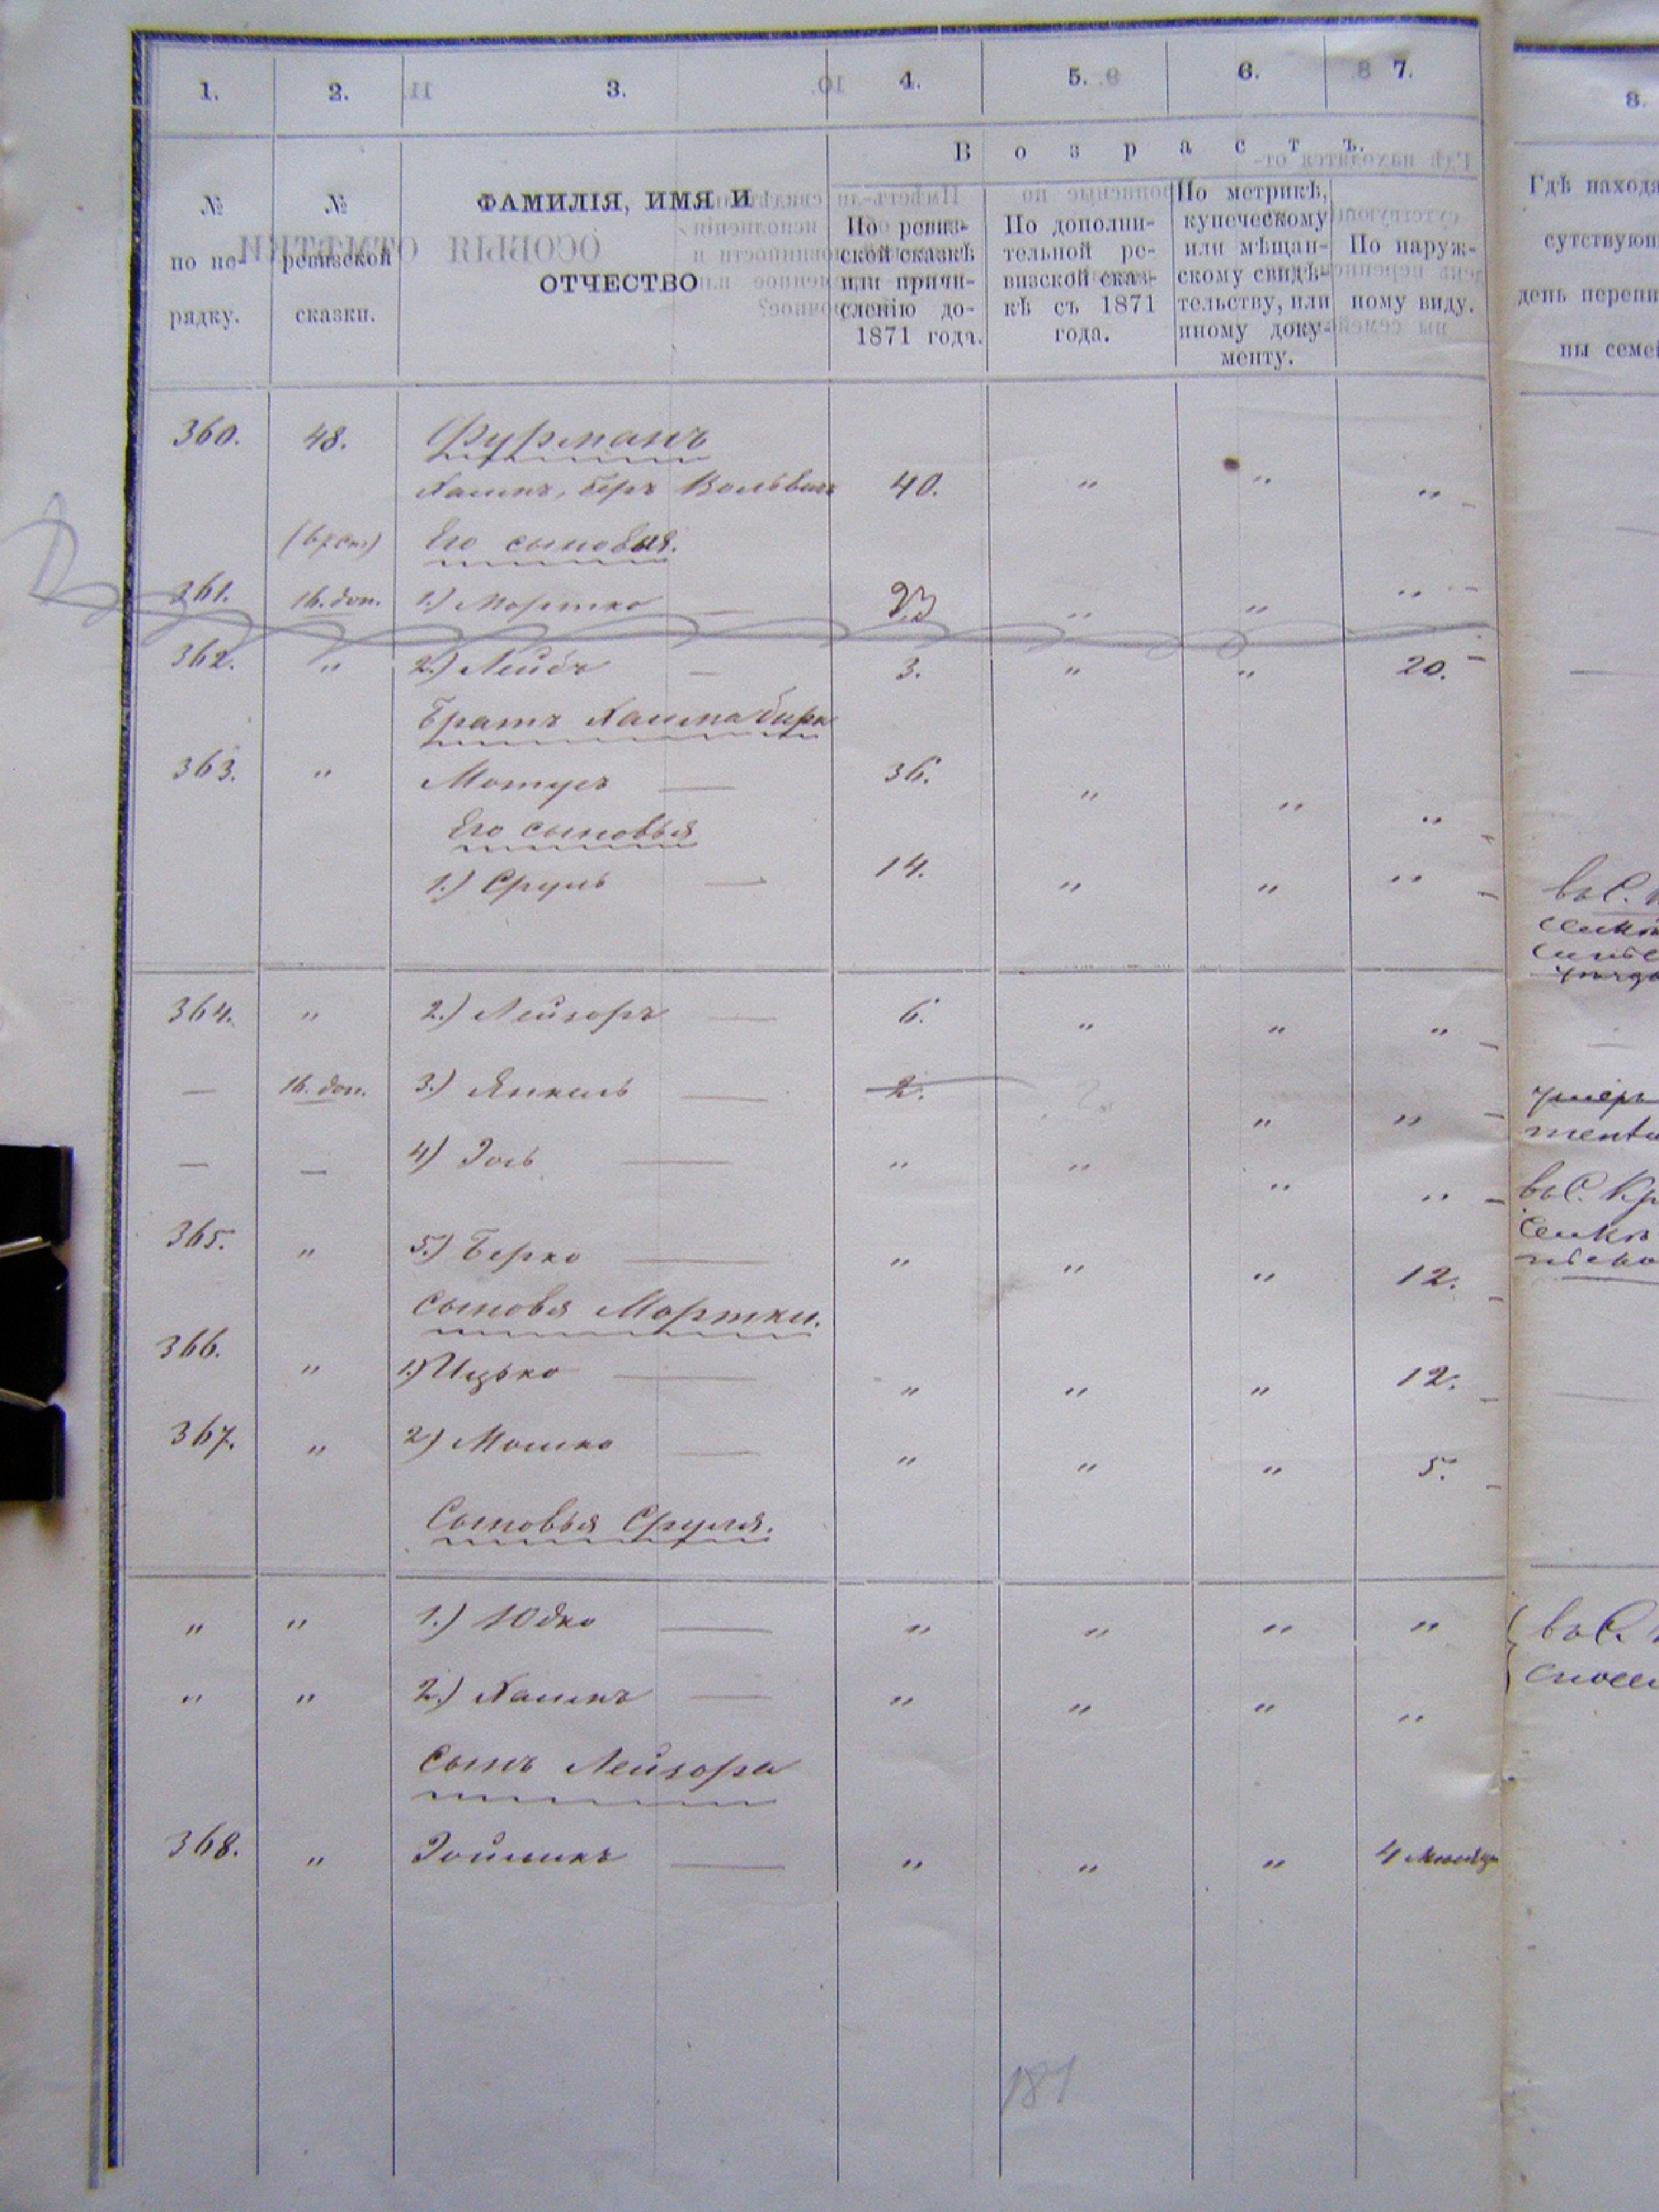 1. 2. 3. 4. 5. 6. 7.
8.
Возрастъ.
№ по по-рядку.
№ ревизской сказки.
ФАМИЛІЯ, ИМЯ И
ОТЧЕСТВО
По ревиз-
ской сказкѣ
или причи-
сленію до-
1871 года.
По дополни-
тельной ре-
визской сказ-
кѣ съ 1871
года.
По метрикѣ,
купеческому
или мѣщан-
скому свидѣ-
тельству, или
иному доку-
менту.
По наруж-
ному виду.
Гдѣ наход
сутствую
день перепи
ны семе
360. 48. Фурманъ
Хаимъ, Беръ Вольвы 40. " " "
Его сыновья.
361. 16. доп. 1.) Мортко — 23 " " "
362. " 2.) Лейбъ — 3. " " 20.
Братъ Хаима Бера
363. " Мотусъ — 36. " " "
Его сыновья
1.) Сруль — 14. " " "
364. " 2.) Лейзоръ — 6. " " "
— 16. доп. 3.) Янкель — 2. " "
умеръ
— — 4) Іось — " " " "
въ С. Кр
365. " 5.) Берко — " " " 12.
Сыновья Мортки.
366. " 1.) Ицько — " " " 12.
367. " 2) Мошко — " " " 5.
Сыновья Сруля.
" " 1.) Юдко — " " " "
въ С.
" " 2.) Хаимъ — " " " "
Сынъ Лейзора
368. " Зойликъ — " " " 4
181